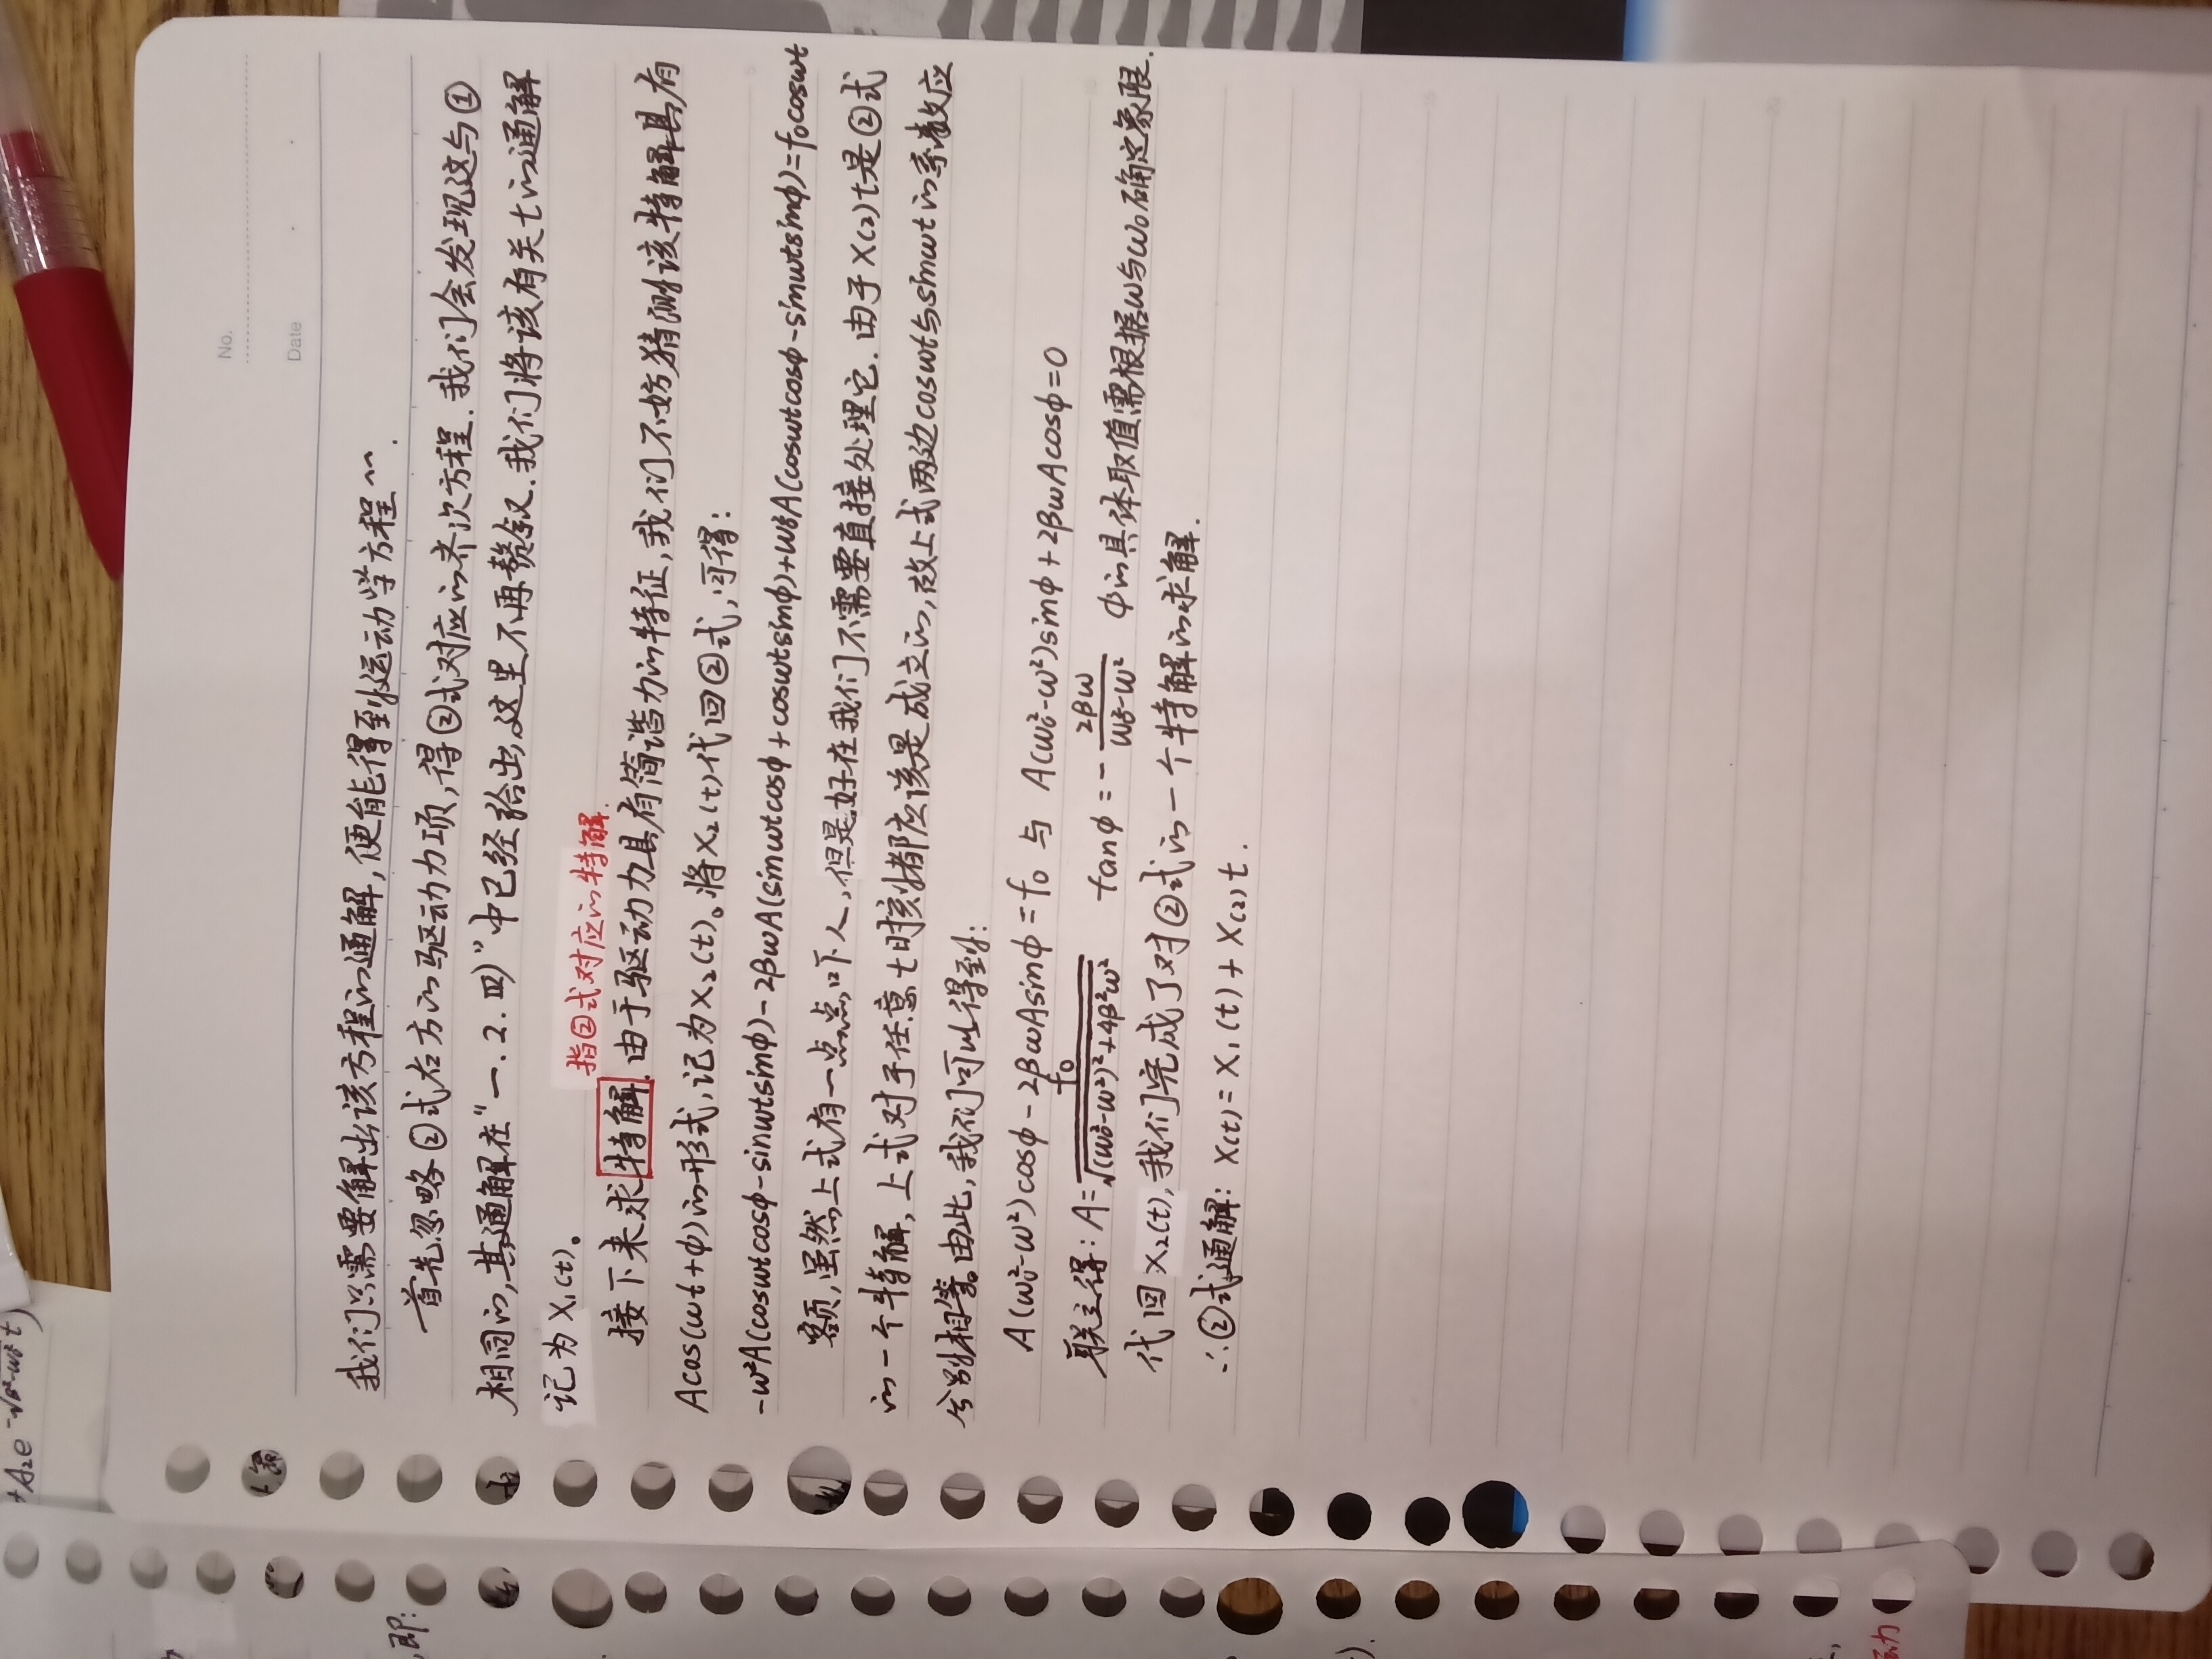 No.
Date
我们只需要解出该方程的通解，便能得到运动学方程~~.
首先忽略②式右方的驱动力项，得②式对应的齐次方程.我们会发现这与①
相同的，其通解在"一.2.四)"中已经给出，这里不再赘叙.我们将该有关t的通解
记为X₁(t)。
指②式对应的特解.
接下来求特解.由于驱动力具有简谐力的特征，我们不妨猜测该特解具有
Acos(ωt+φ)的形式，记为X₂(t)。将X₂(t)代回②式，可得：
-ω²A(cosωtcosφ-sinωtsinφ)-2βωA(sinωtcosφ+cosωtsinφ)+ω₀²A(cosωtcosφ-sinωtsinφ)=f₀cosωt
额，虽然上式有一点点吓人，但是好在我们不需要直接处理它.由于X(2)t是②式
的一个特解，上式对于任意t时刻都应该是成立的，故上式两边cosωt与sinωt的系数应
分别相等。由此，我们可以得到：
A(ω₀²-ω²)cosφ-2βωAsinφ=f₀ 与 A(ω₀²-ω²)sinφ+2βωAcosφ=0
联立得：A=f₀/√((ω₀²-ω²)²+4β²ω²) tanφ=-2βω/(ω₀²-ω²) φ的具体取值需根据ω与ω₀确定象限.
代回X₂(t)，我们完成了对②式的一个特解的求解.
∴②式通解：X(t)=X₁(t)+X(2)t.
即：